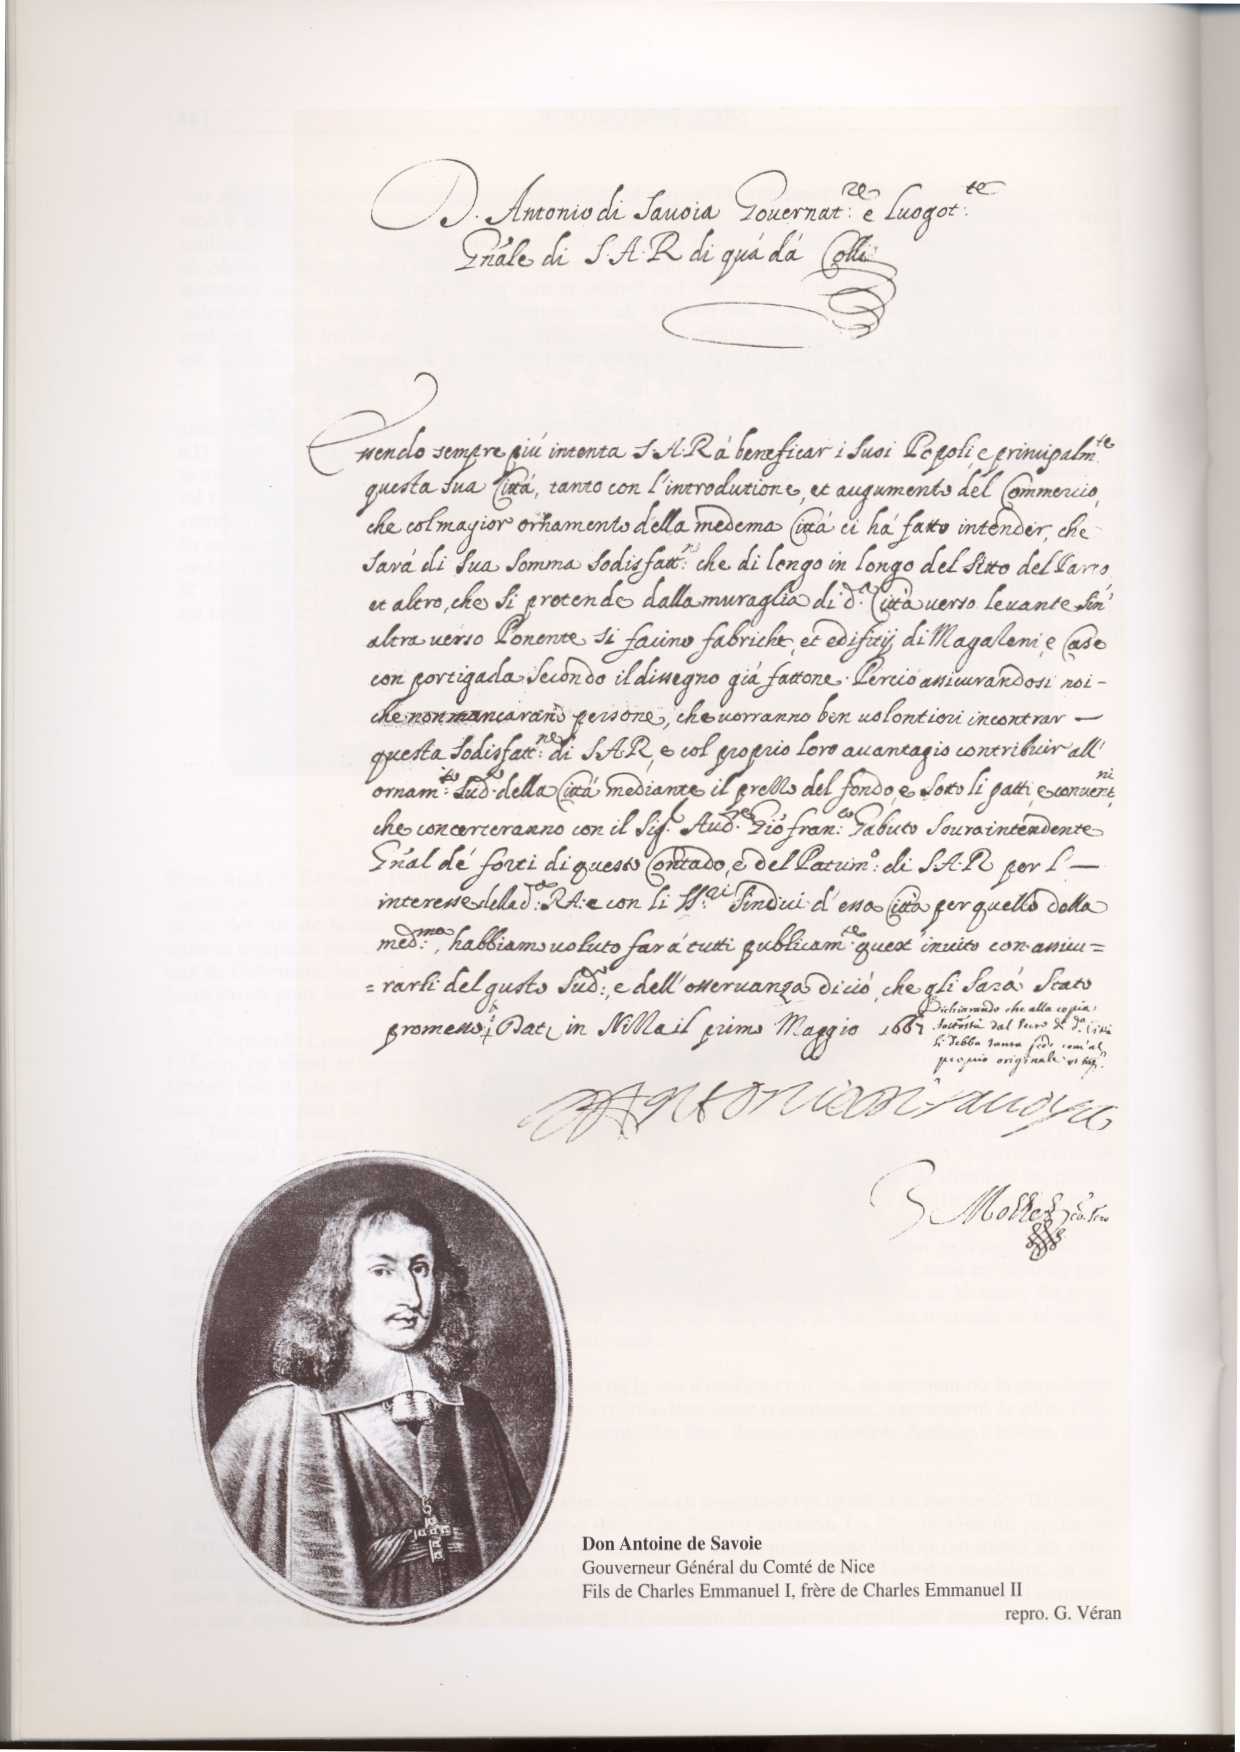 D. Antonio di Savoia Governat:re è Luogot:te
Gn'ale di S.A.R di quá dá Colli
Essendo sempre piú intenta S.A.R á beneficar i suoi Popoli e principalm:te
questa sua Cittá, tanto con l'introdutione, et augumento del Commercio,
che col magior ornamento della medema Cittá ci há fatto intender, che
sará di sua somma sodisfatt:ne che di longo in longo del sitto del Parro,
et altro, che si protende dalla muraglia di d.a Cittá verso levante sin'
altra verso Ponente si facino fabriche, et edifitij di Magaseni, e Case
con portigada secondo il dissegno giá fattone. Perció assicurandosi noi -
che non mancarano persone, che vorranno ben volontieri incontrar —
questa sodisfatt:ne di S.A.R, e col proprio loro avantagio contribuir all'
ornam:to sud:o della Cittá mediante il presso del fondo, e sotto li patti, e convent:ni
che concerteranno con il Sig.r Aud.re Gió Fran:co Gabuto Sovraintendente
Gn'al dé forti di questo Contado, e del Patrim:o di S.A.R per l' —
interesse della d:a R.A. e con li SS:ri Sindici d'essa Cittá per quello della
med:ma, habbiamo voluto far á tutti publicam:te quest' invito con assicu=
=rarli del gusto sud:o, e dell'osservanza di ció, che gli sará stato
promesso Dat. in Nissa il primo Maggio 1667
Dichiarando che alla copia
dal Secro di d.a Città
si debba tanta fede com'al
proprio originale
D Antonio di Savoya